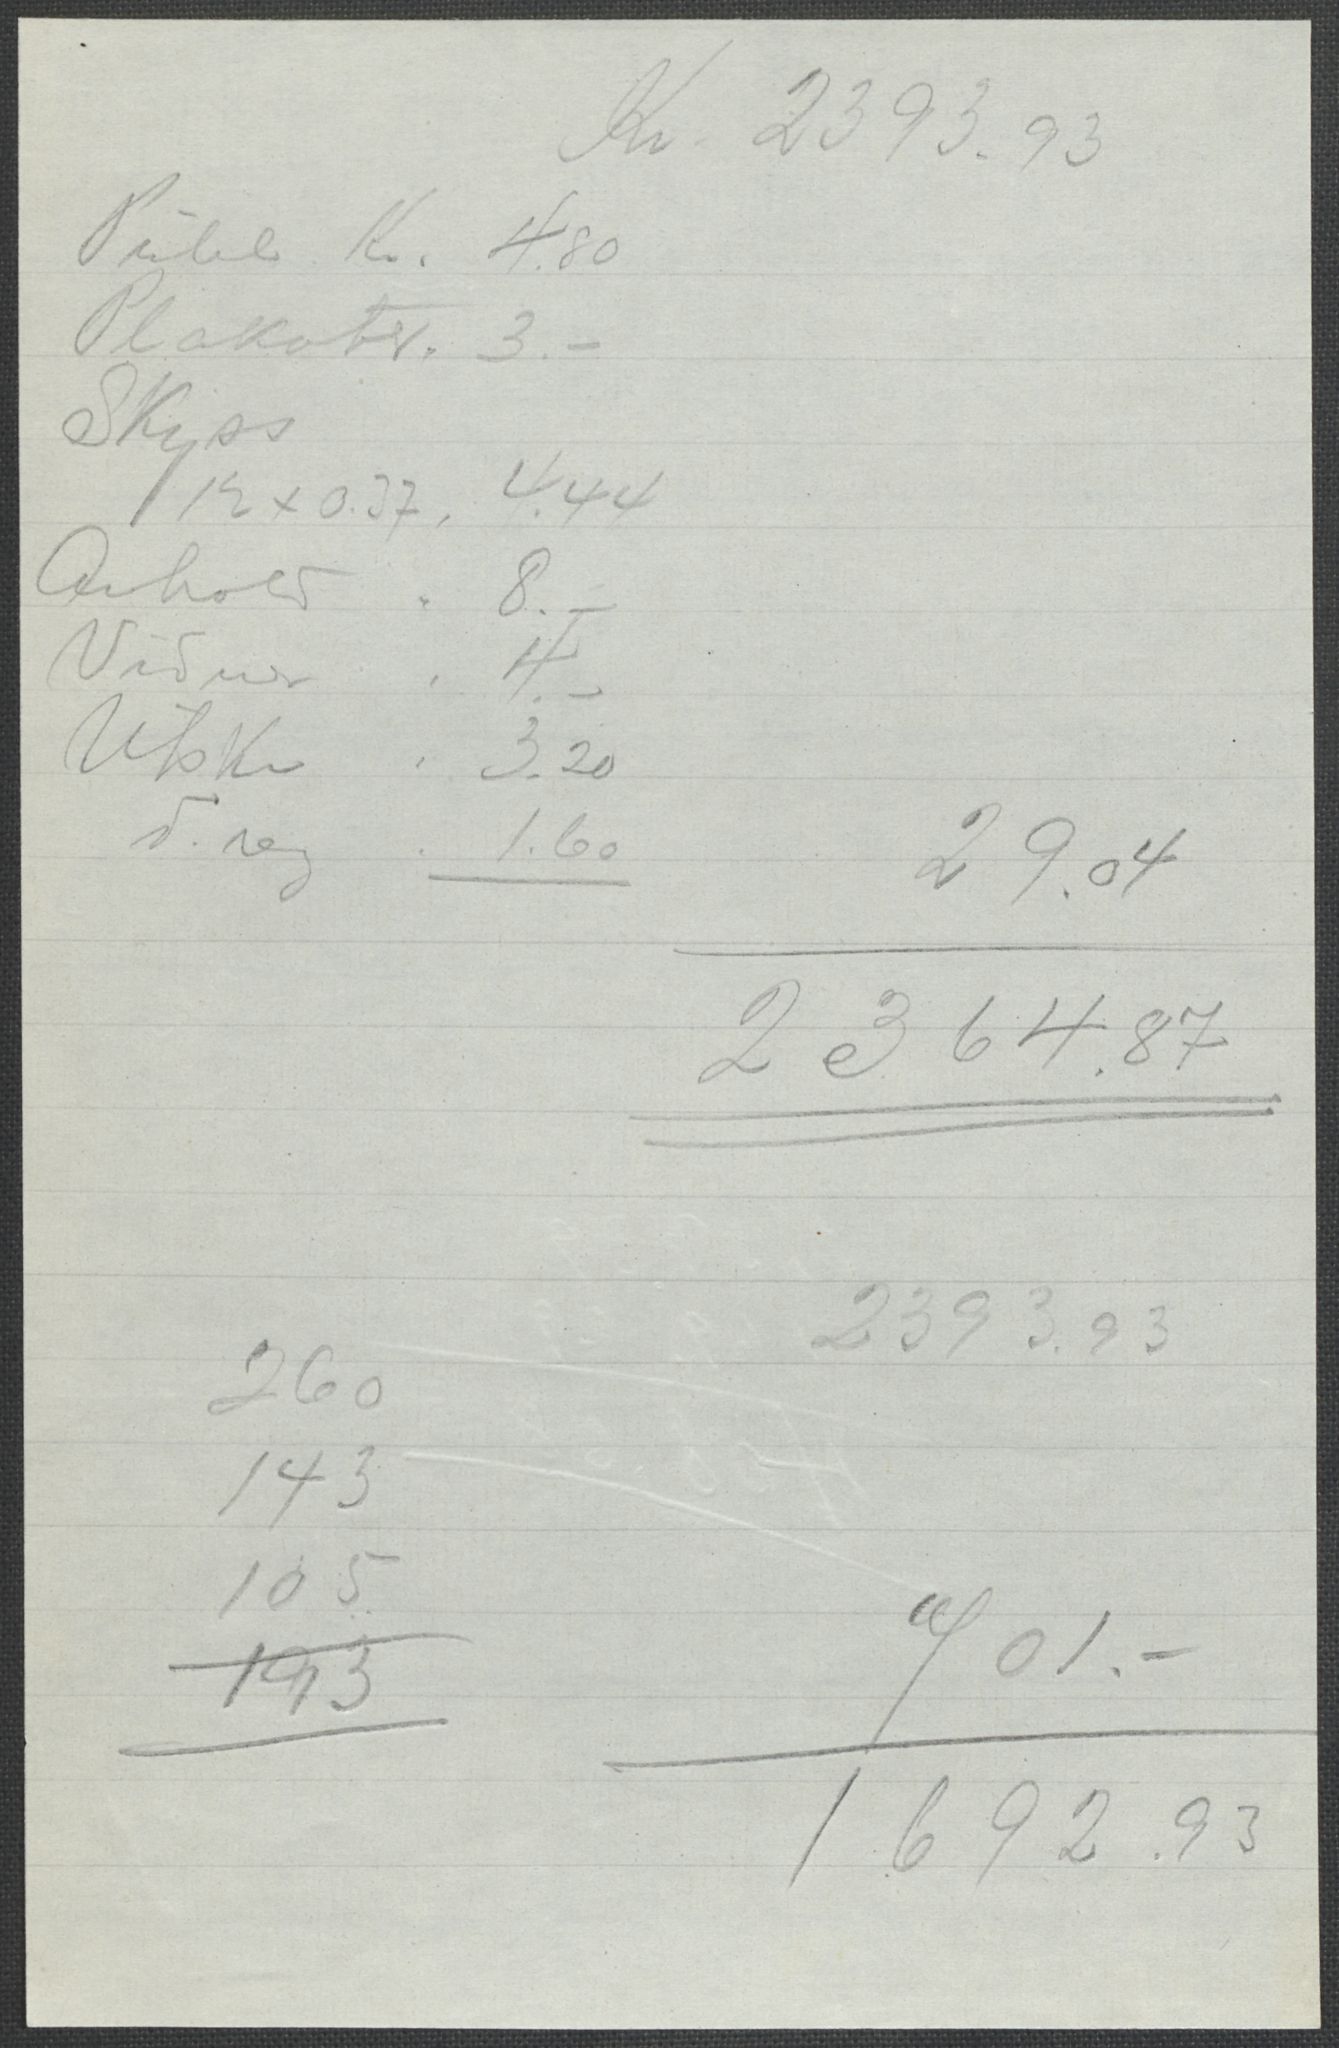 Kr. 2393.93
Publ. Kr. 4.80
Plakater. 3.-
Skyss
12 x 0.37, 4.44
Avhold " 8.-
Vidner " 4.-
Utskr " 3.20
d. reg " 1.60
29.04
2364.87
2393.93
260
143
105
193
701.-
1692.93